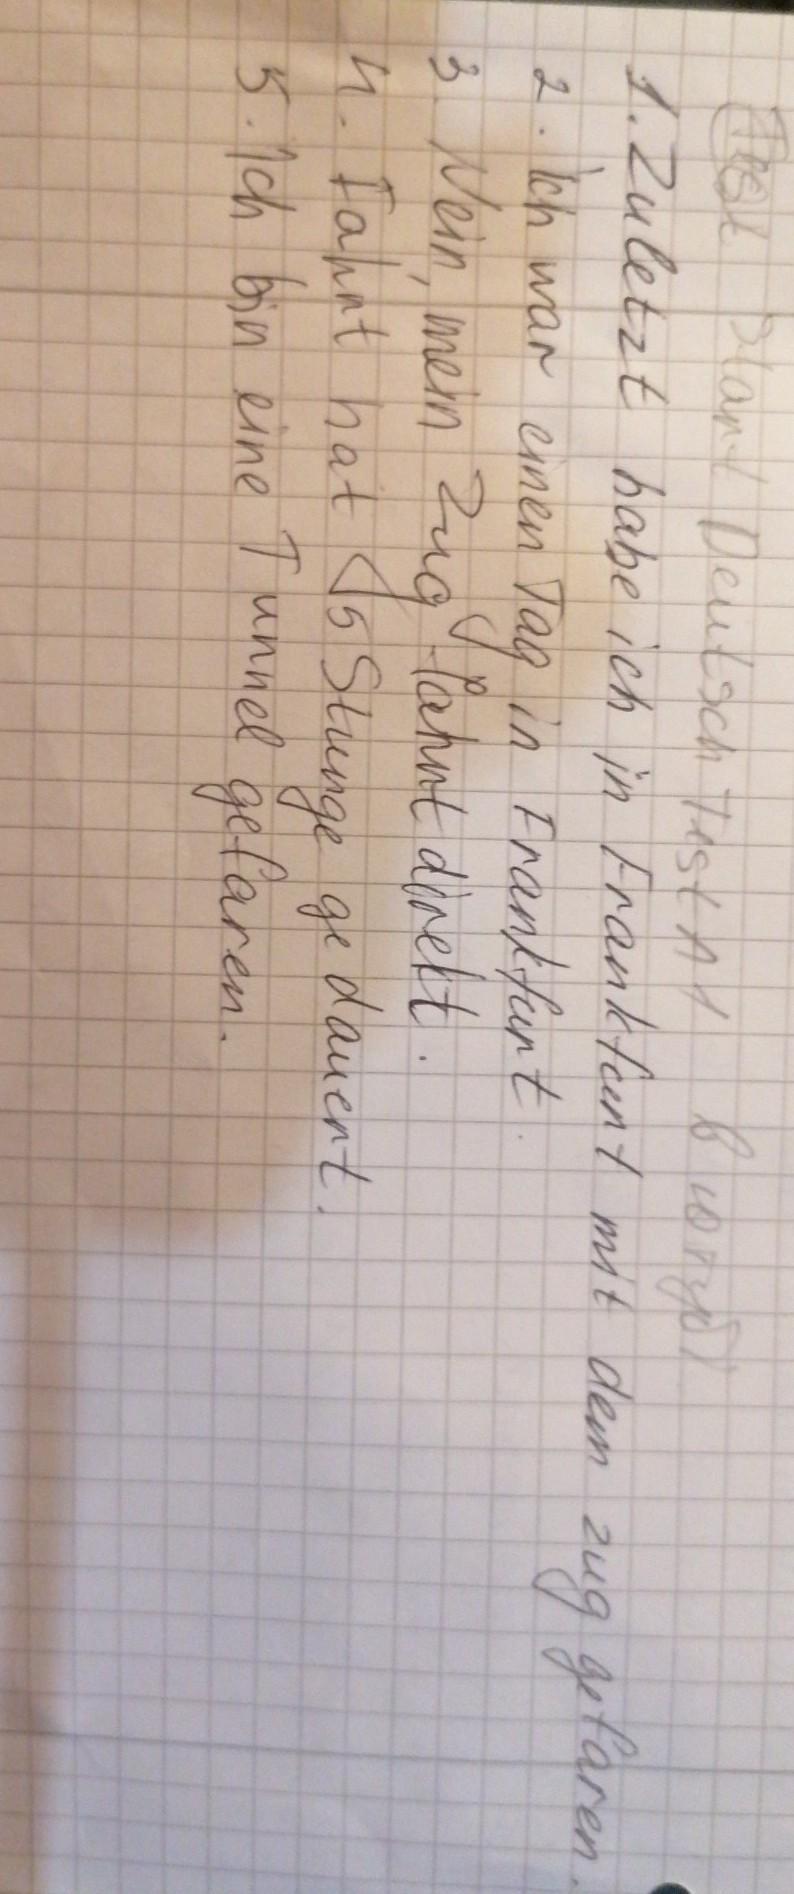 Start Deutsch Test A1 в ютубі
1. Zuletzt habe ich in Frankfurt mit dem zug gefaren.
2. Ich war einen Tag in Frankfurt.
3 Nein, mein Zug fahrt direkt.
4. Fahrt hat 5 Stunge gedauert.
5. Ich bin eine Tunnel gefaren.